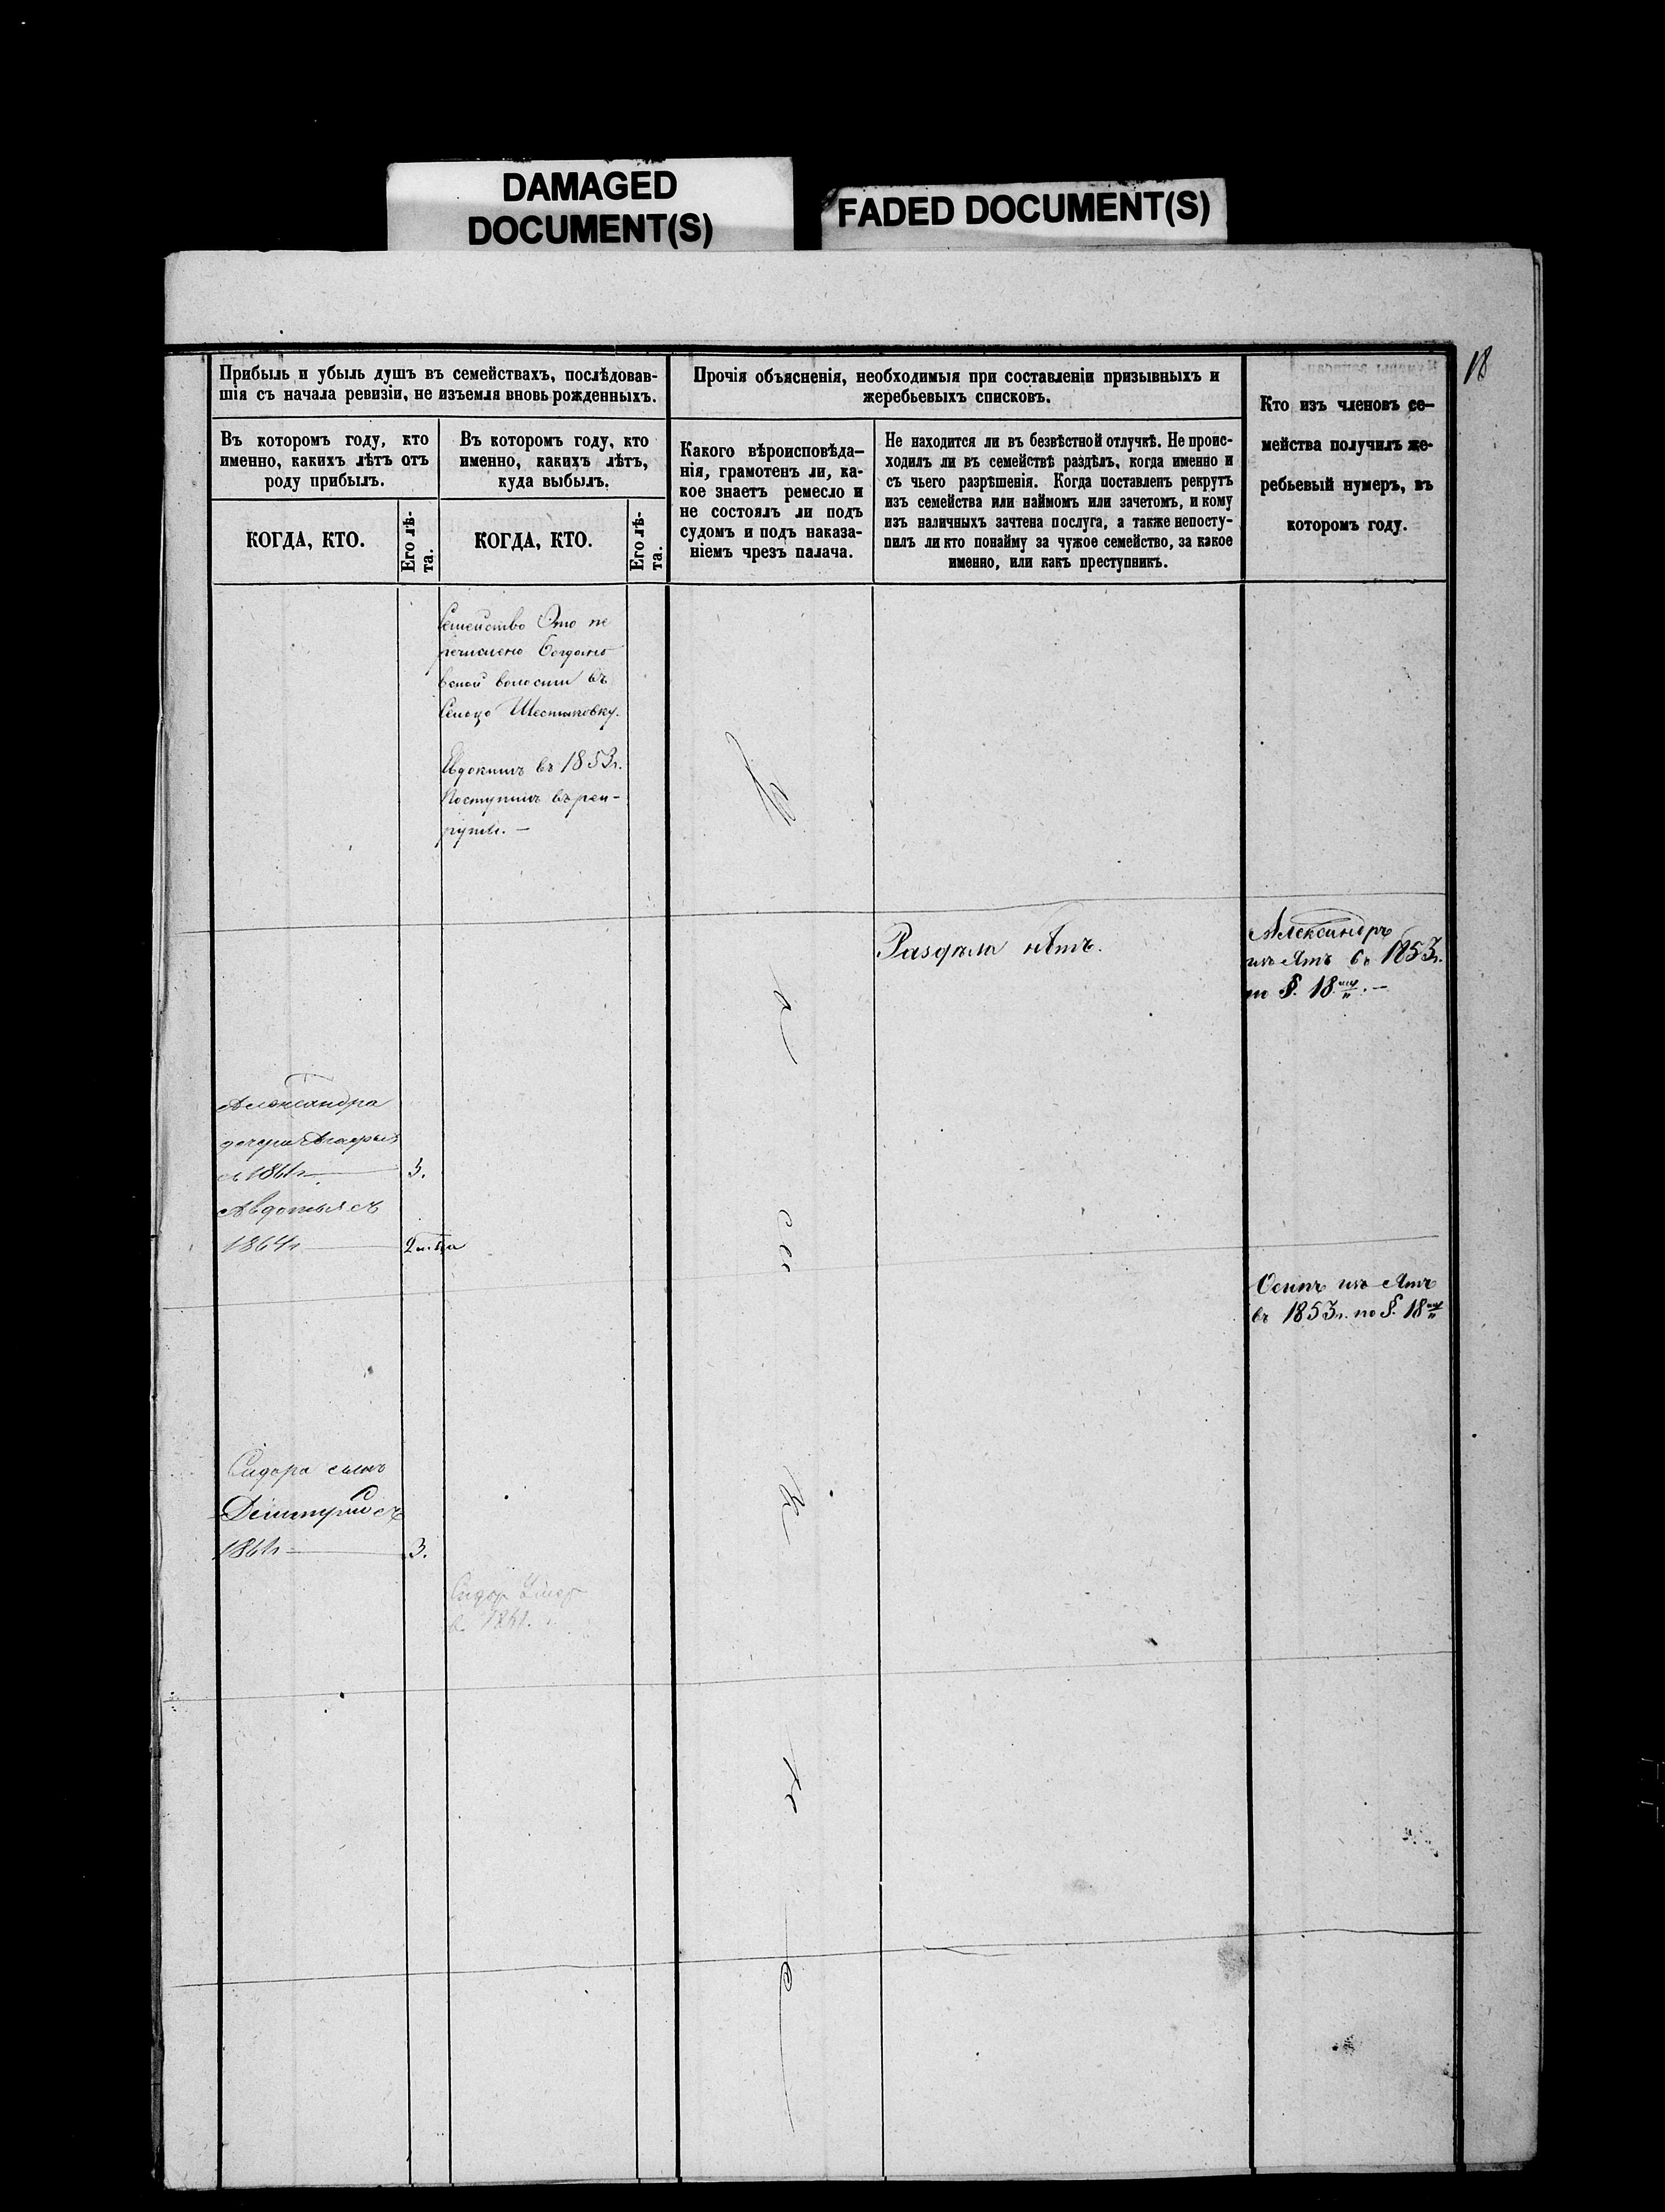 DAMAGED
DOCUMENT(S)
FADED DOCUMENT(S)
18
Прибыль и убыль душъ въ семействахъ, послѣдовав-
шія съ начала ревизіи, не изъемля вновь рожденныхъ.
Въ которомъ году, кто
именно, какихъ лѣтъ отъ
роду прибылъ.
КОГДА, КТО.
Его лѣ-
та.
Въ которомъ году, кто
именно, какихъ лѣтъ,
куда выбылъ.
КОГДА, КТО.
Его лѣ-
та.
Прочія объясненія, необходимыя при составленіи призывныхъ и
жеребьевыхъ списковъ.
Какого вѣроисповѣда-
нія, грамотенъ ли, ка-
кое знаетъ ремесло и
не состоялъ ли подъ
судомъ и подъ наказа-
ніемъ чрезъ палача.
Не находится ли въ безвѣстной отлучкѣ. Не проис-
ходилъ ли въ семействѣ раздѣлъ, когда именно и
съ чьего разрѣшенія. Когда поставленъ рекрутъ
изъ семейства или наймомъ или зачетомъ, и кому
изъ наличныхъ зачтена послуга, а также непосту-
пилъ ли кто понайму за чужое семейство, за какое
именно, или какъ преступникъ.
Кто изъ членовъ се-
мейства получилъ же-
ребьевый нумеръ, въ
которомъ году.
Семейство Это пе
речислено Богдано
вской волости въ
Сельцо Шестаковку.
Евдокимъ въ 1853г.
Поступилъ въ рек-
руты. —
Раздѣла нѣтъ.
Александръ
въ 1853г.
по §. 18
Александра
дочери Агафья
съ 1861г. 3.
Авдотья съ
1864г.
Осипъ
въ 1853г. по §. 18
Сидора сынъ
Дмитрій съ
1861г. 3.
Сидор Умер
в. 1861.